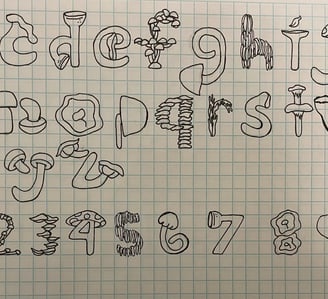 c d e f g h i
n o p q r s t
y z
2 3 4 5 6 7 8